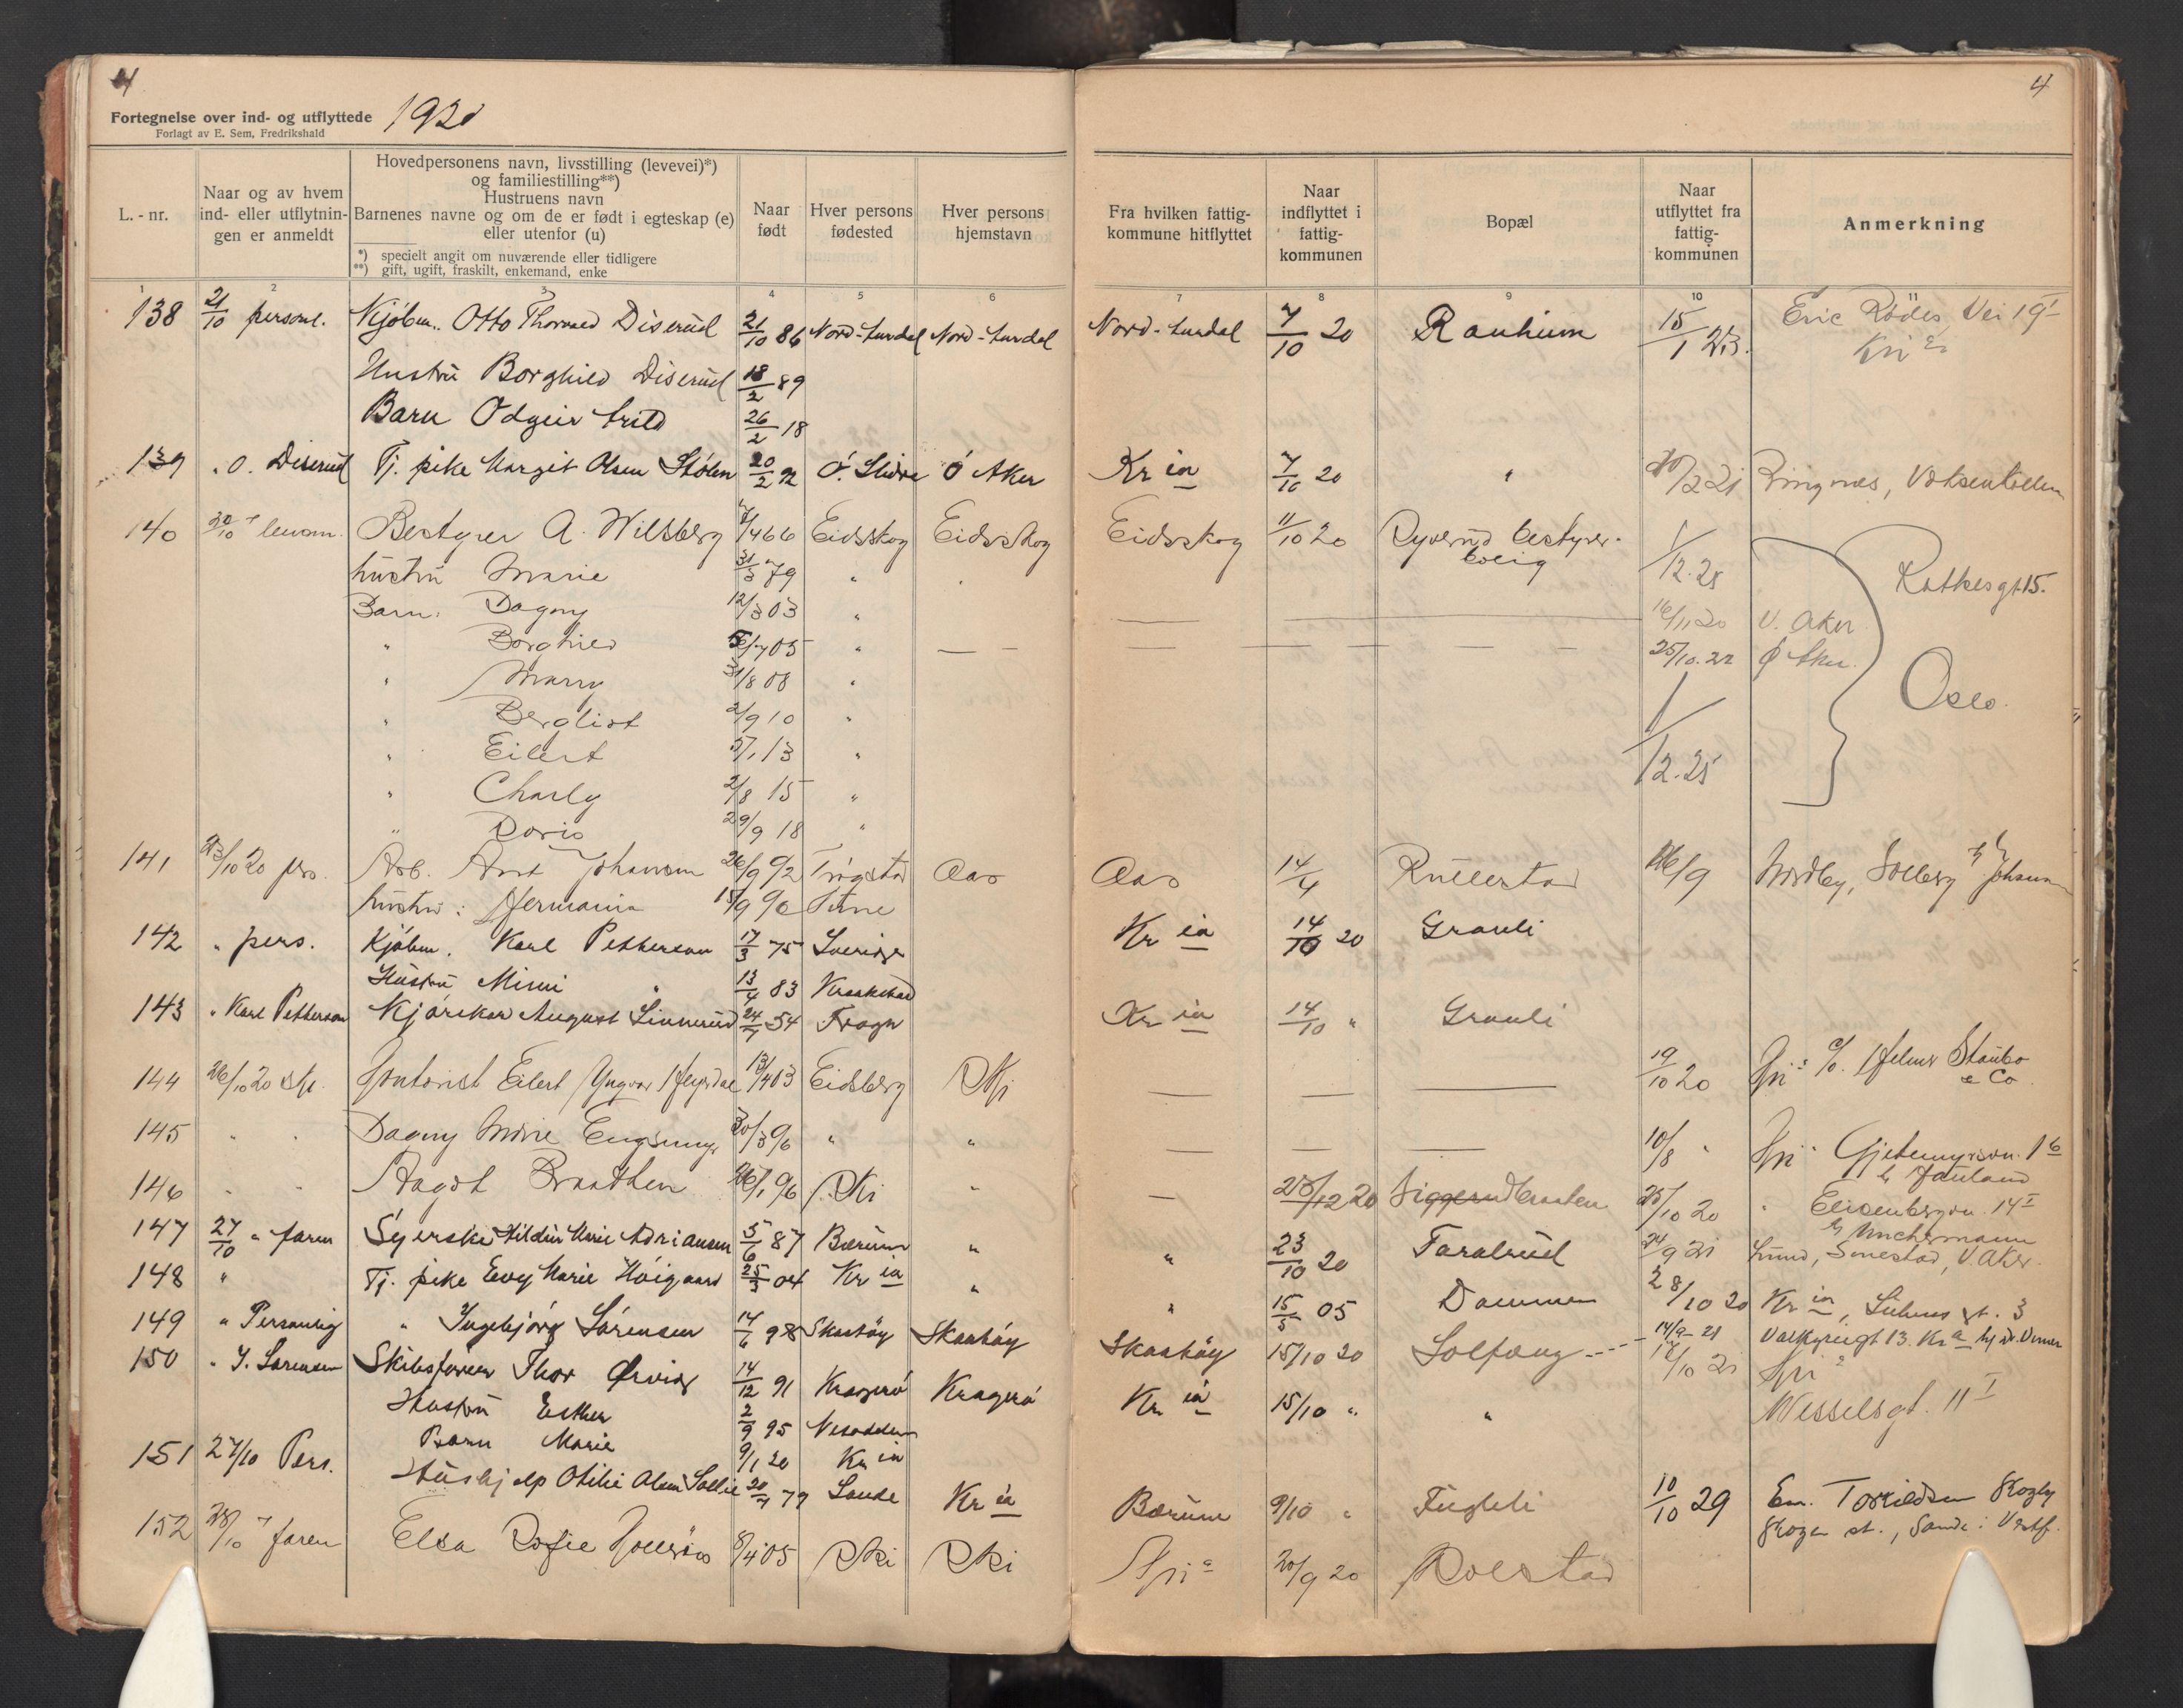 4
4
Fortegnelse over ind- og utflyttede 1920
Forlagt av E. Sem, Fredrikshald
L. - nr.
Naar og av hvem
ind- eller utflytnin-
gen er anmeldt
Hovedpersonens navn, livsstilling (levevei)*)
og familiestilling**)
Hustruens navn
Barnenes navne og om de er født i egteskap (e)
eller utenfor (u)
*) specielt angit om nuværende eller tidligere
**) gift, ugift, fraskilt, enkemand, enke
Naar
født
Hver persons
fødested
Hver persons
hjemstavn
Fra hvilken fattig-
kommune hitflyttet
Naar
indflyttet i
fattig-
kommunen
Bopæl
Naar
utflyttet fra
fattig-
kommunen
Anmerkning
1 2 3 4 5 6 7 8 9 10 11
138 21/10 personl. Kjøbm. Otto Thorvald Diserud 21/10 86 Nord-Aurdal Nord-Aurdal Nord-Aurdal 7/10 20 Ranheim 15/1 23. Eric Rödes Vei 19
Kria
Hustru Borghild Diserud 18/2 89
Barn Odgeir 26/2 18
139 " O. Diserud Tj. pike Margit Olsen Stølen 20/2 92 Ø. Slidre Ø Aker Kr ia 7/10 20 " 12 21 Ringnes, Voksenkollen
140 Bestyrer A. Wilsberg 7/4 66 Eidsskog Eidsskog Eidsskog 11/10 20 Ryverud bestyrer-
bolig 1/12.25 Rathkesgt 15.
hustru Marie 31/3 79 "
Barn: Dagny 12/3 03 " 16/11 20 V. Aker
" Borghild 7 05 " 25/10.22 Ø Aker
" Marry 31/8 08 "
" Berglist 2/9 10 " Oslo.
" Eilert 5/1 13 "
" Charly 2/8 15 " 1/12.25
" Doris 29/9 18 "
141 23/10 20 pers. Arb. Arnt Johansen 26/9 92 Trøgstad Aas Aas 14/4 Rullestad 26/9 Nordby, Solberg
hustru: Hermania 15/9 90
142 " pers. Kjøbm. Karl Petterson 17/3 75 Sverige Kr ia 14/10 20 Granli
Hustru Mimi " 13/4 83 Kraakstad
143 " Karl Petterson Kjørekar August Linnerud 24/7 54 Frogn Kr ia 14/10 " Granli
144 26/10 20 Ski. Kontorist Eilert Yngvar 13/4 03 Eidsberg Ski 19/10 20 Kria c/o. Helmer Staubo
& Co.
145 " " Dagny Marie 30/3 96 " " 10/8 " Kria Gjetemyrsvn. 1 b
146 " " Aagot Braathen 26/1 96 Ski " 12 20 Siggerud Braaten 25/10 20 " Eilenbergvn. 14 I
147 27/10 " faren Syerske Hildur Marie Adriansen 5/6 87 Bærum " " 23/10 20 Taralrud 24/9 21 Lund, Smestad, V. Aker.
148 " Tj. pike Evy Marie Høigaard 25/3 04 Kr ia " " 15/5 05 Dammen 28/10 20 Kr ia
149 " Personlig " Ingebjørg Sørensen 14/6 98 Skaatøy Skaatøy Skaatøy 15/10 20 Solfang 14/9 21 Valkyriegt 13. Kr a
150 " I. Sørensen Skibsfører Thor Ørvig 14/12 91 Kragerø Kragerø Kr ia 15/10 " " 10 21 Kria
Wesselsgt. 11 I
Hustru Esther 2/9 95 Nesodden
Barn Marie 9/1 20 Kr ia
151 27/10 Pers. Hushjelp Otilie Olsen Sollie 20/4 79 Sande Kr ia Bærum 9/10 " Fugleli 10/10 29 Em. Torkildsen Skogly
Skoger st., Sande i Vestf.
152 28/10 faren Elsa Sofie 8/4 05 Ski Ski Kria 20/9 20 Rolstad